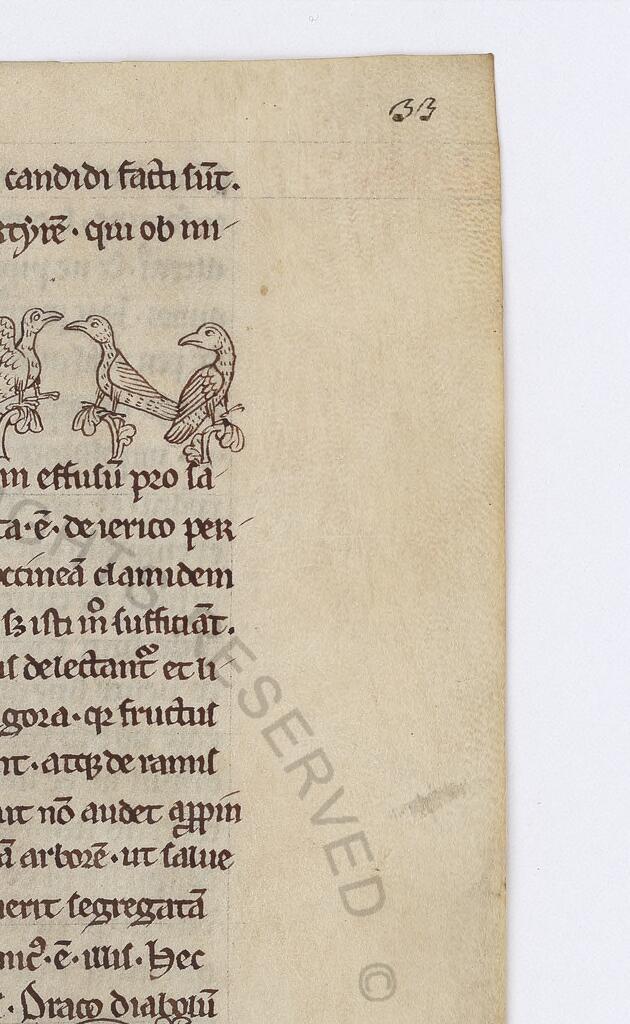 33
candidi facti sūt.
rtyrē · qui ob mi
in effusū pro sa
ta · ē · de ierico per
ccineā clamidem
sꝫ isti m̊ sufficiāt.
us delectant᷑ et li
gora · qꝛ fructus
nt · atqꝫ de ramis
ut nō audet appin
ā arborē · ut salue
uerit segregatā
mic᷒ · ē · illis · Hec
Draco diabolū
RIGHTS RESERVED ©